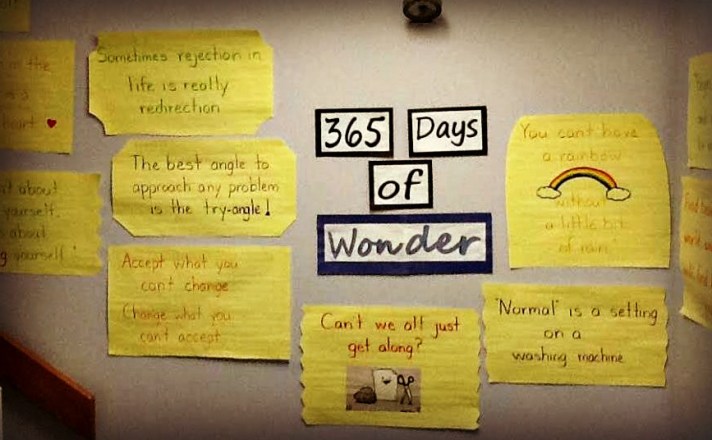 in the
heart
't about
yourself.
s about
g yourself."
Sometimes rejection in
life is really
redirection
The best angle to
approach any problem
is the try-angle!
Accept what you
can't change
Change what you
can't accept
365 Days
of
Wonder
Can't we all just
get along?
You can't have
a rainbow
without
a little bit
of rain
"Normal" is a setting
on a
washing machine